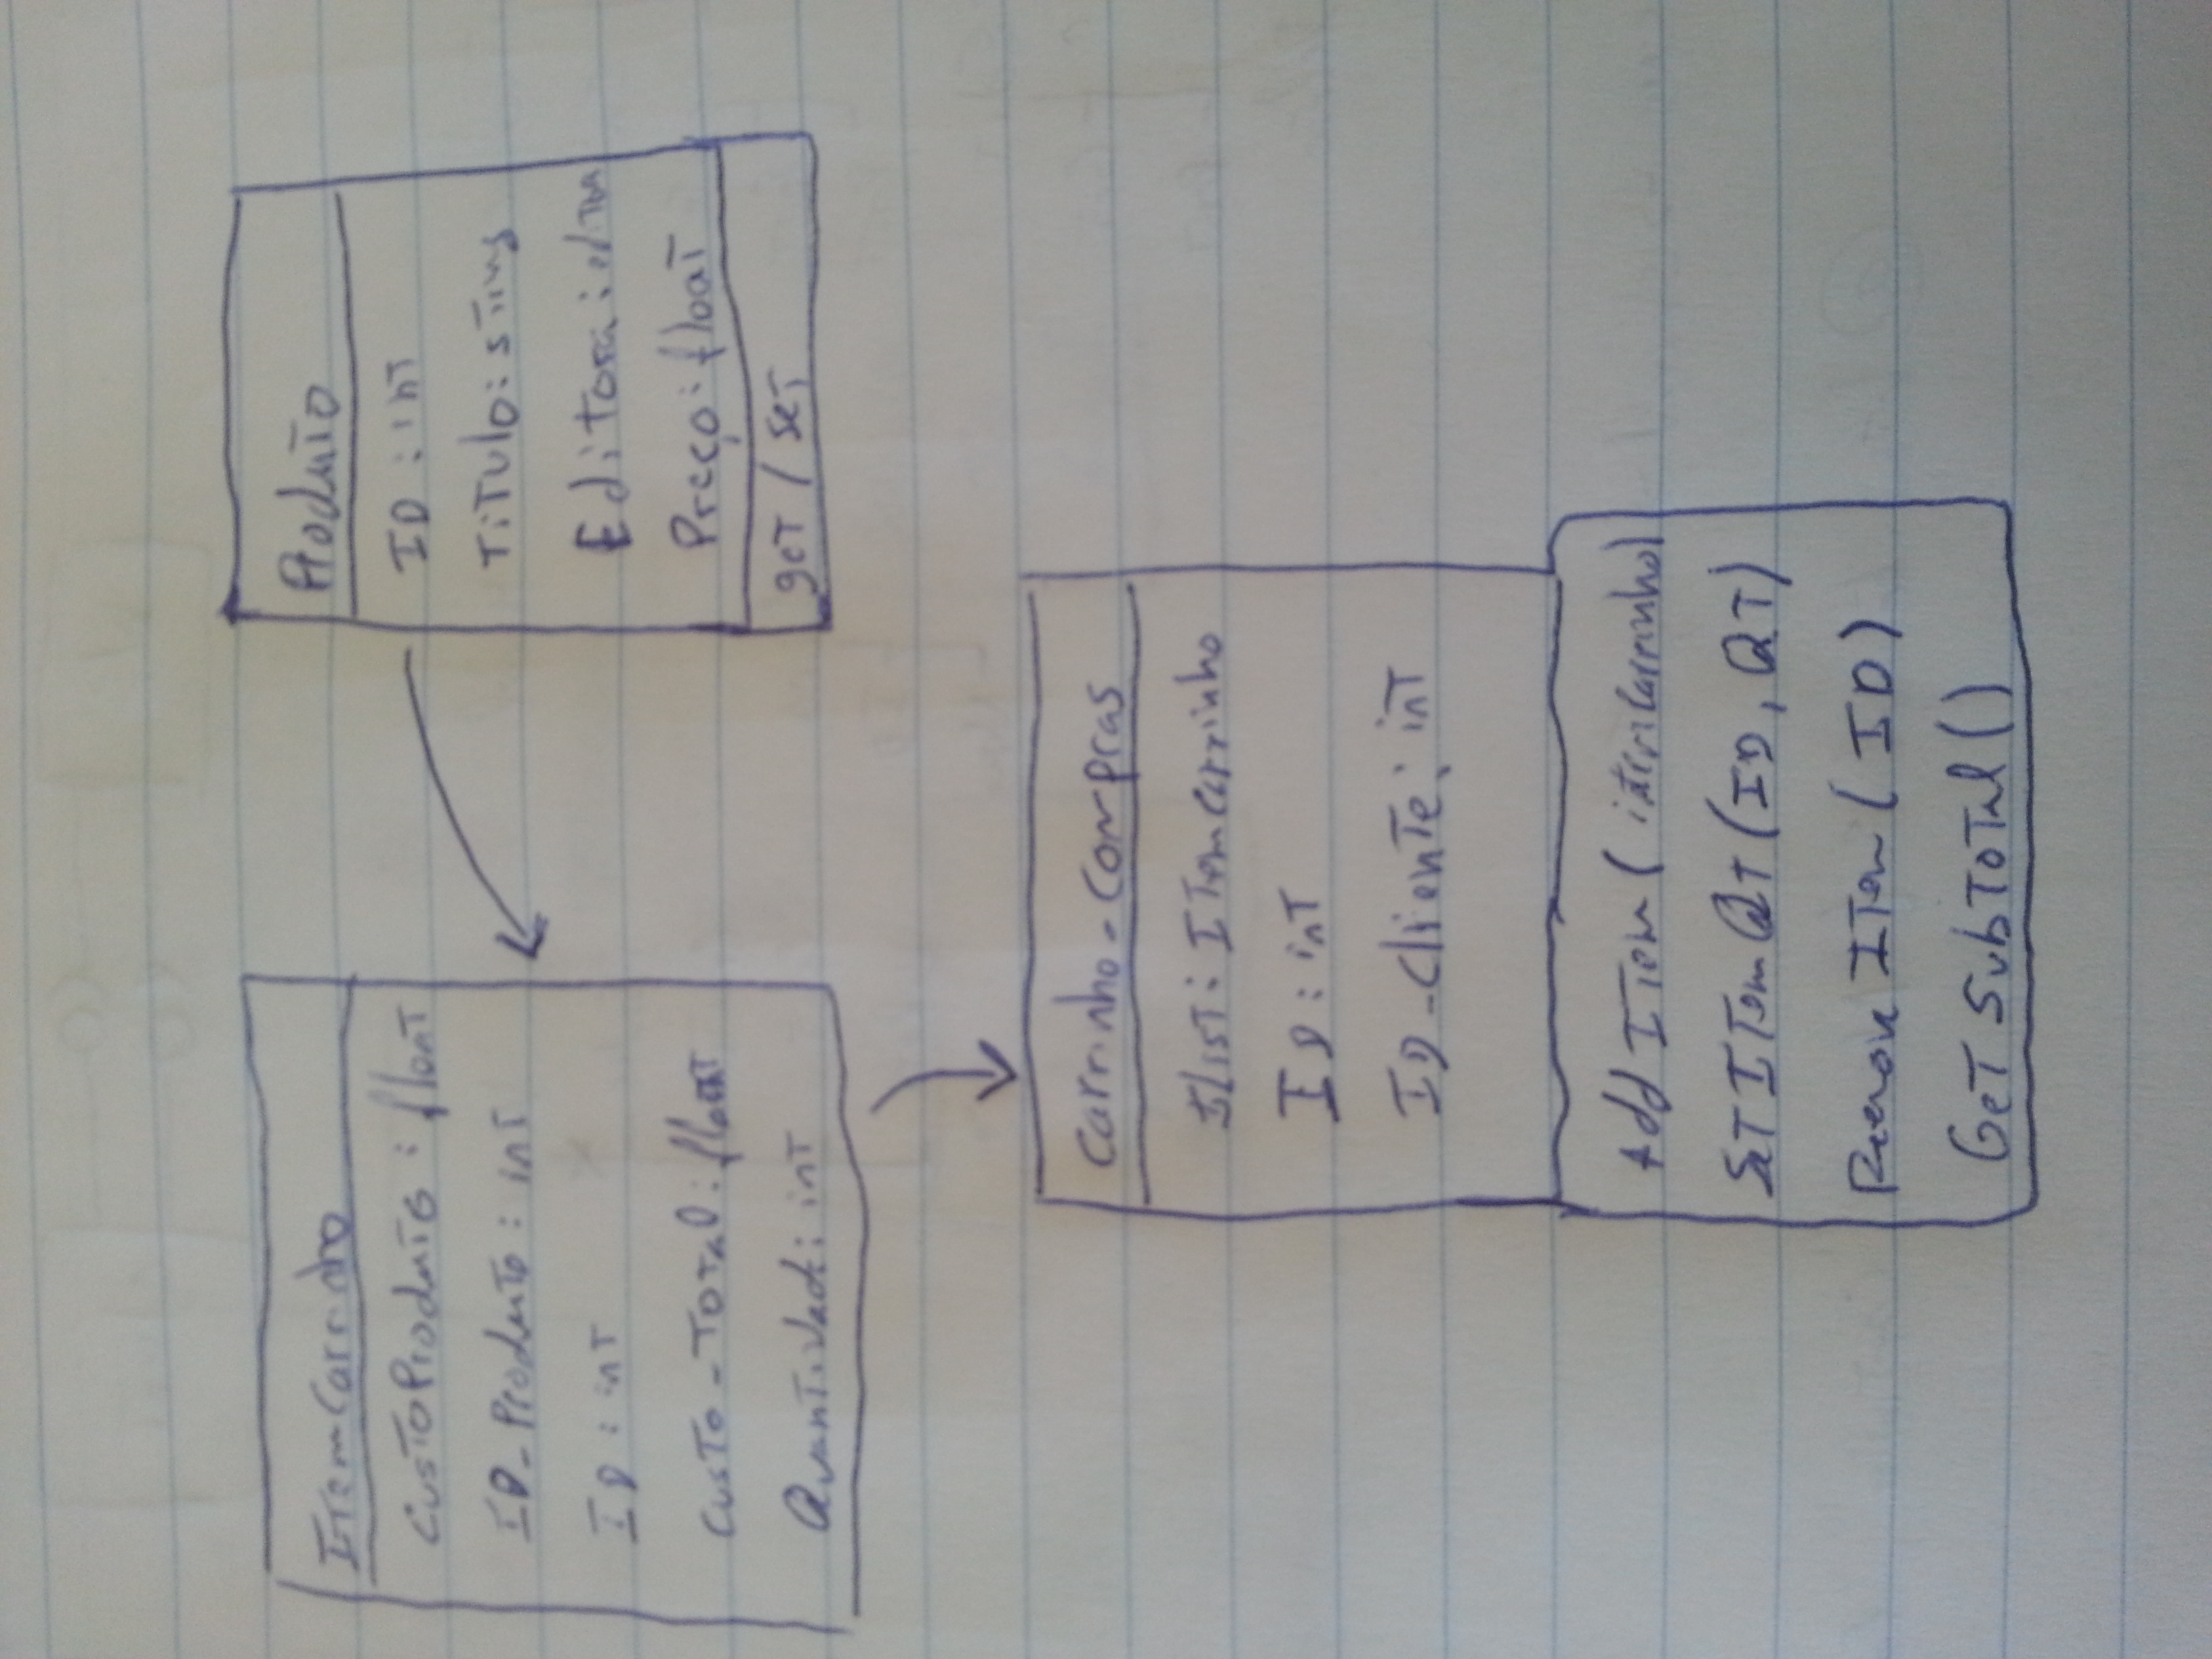 ItemCarrinho
CustoProduto : float
ID_Produto : int
ID : int
Custo_Total : float
Quantidade : int
Produto
ID : int
Titulo : string
Editora : editora
Preço : float
get / set
Carrinho_Compras
IList : ItemCarrinho
ID : int
ID_Cliente : int
Add Item ( itemCarrinho)
Set Item QT (ID, QT)
Remove Item ( ID )
Get SubTotal ()